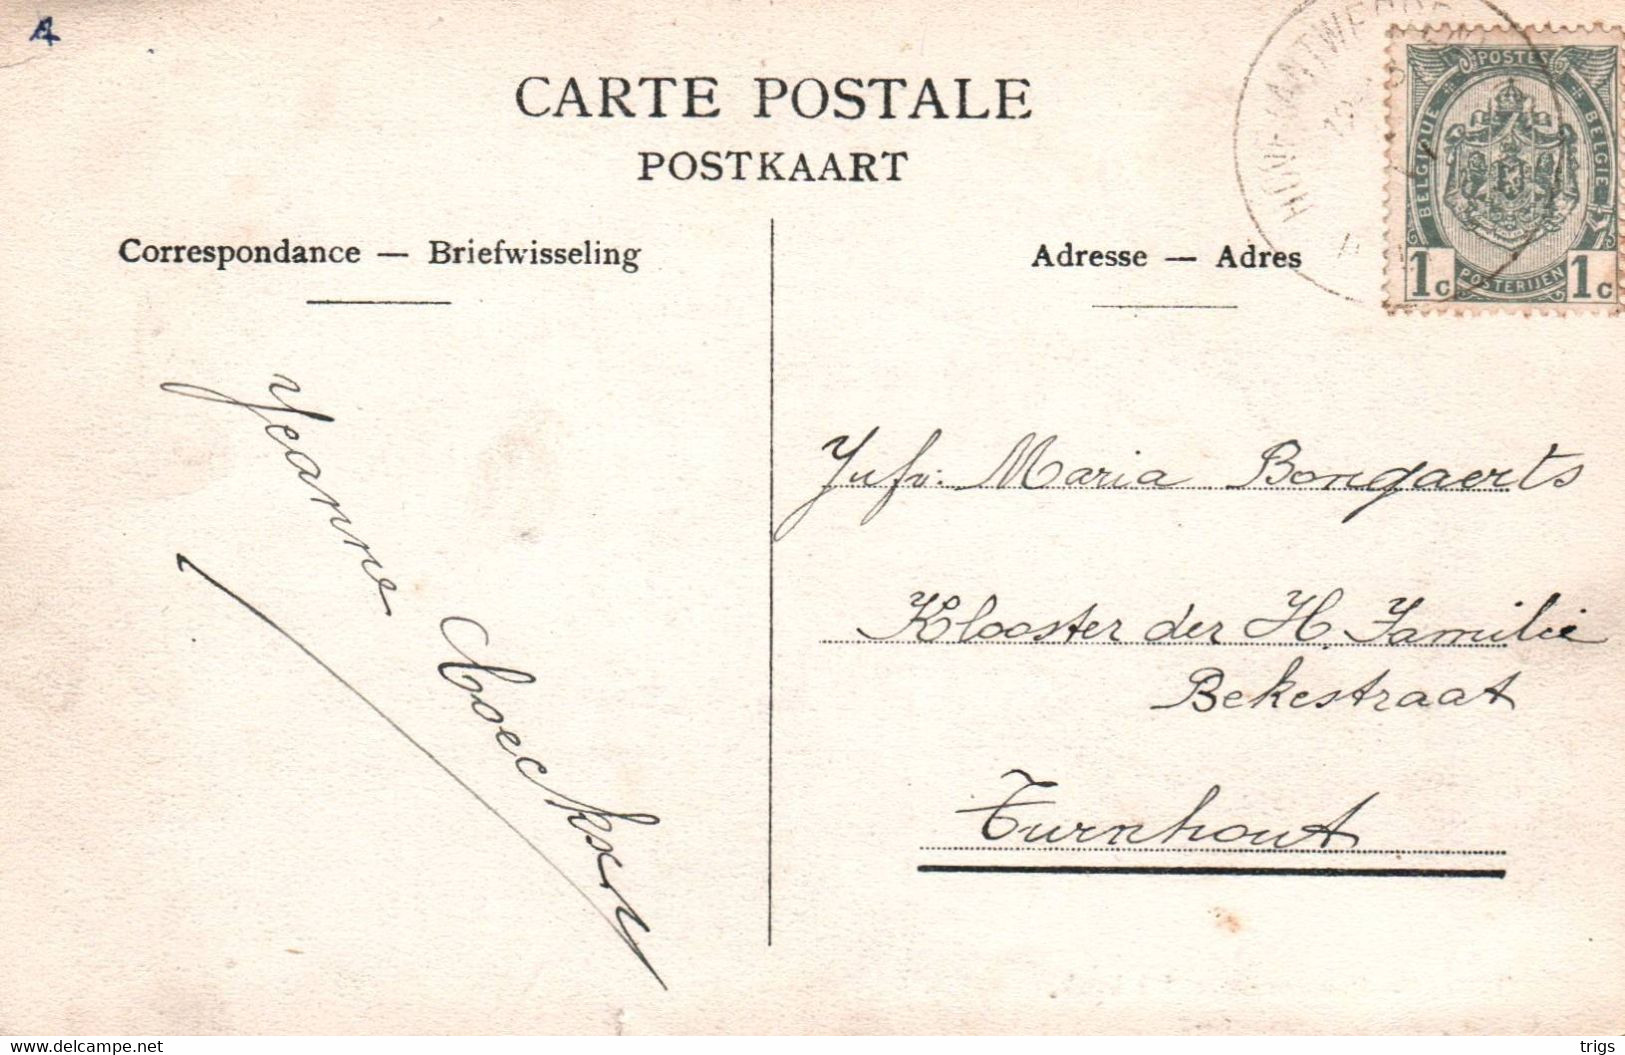 A
CARTE POSTALE
POSTKAART
Correspondance — Briefwisseling
Adresse — Adres
POSTES
BELGIQUE
BELGIË
POSTERIJEN
1c 1c
HOVE (ANTWERPEN)
Jeanne Coeckx
Jufv. Maria Bongaerts
Klooster der H Familie
Bekestraat
Turnhout
www.delcampe.net
trigs